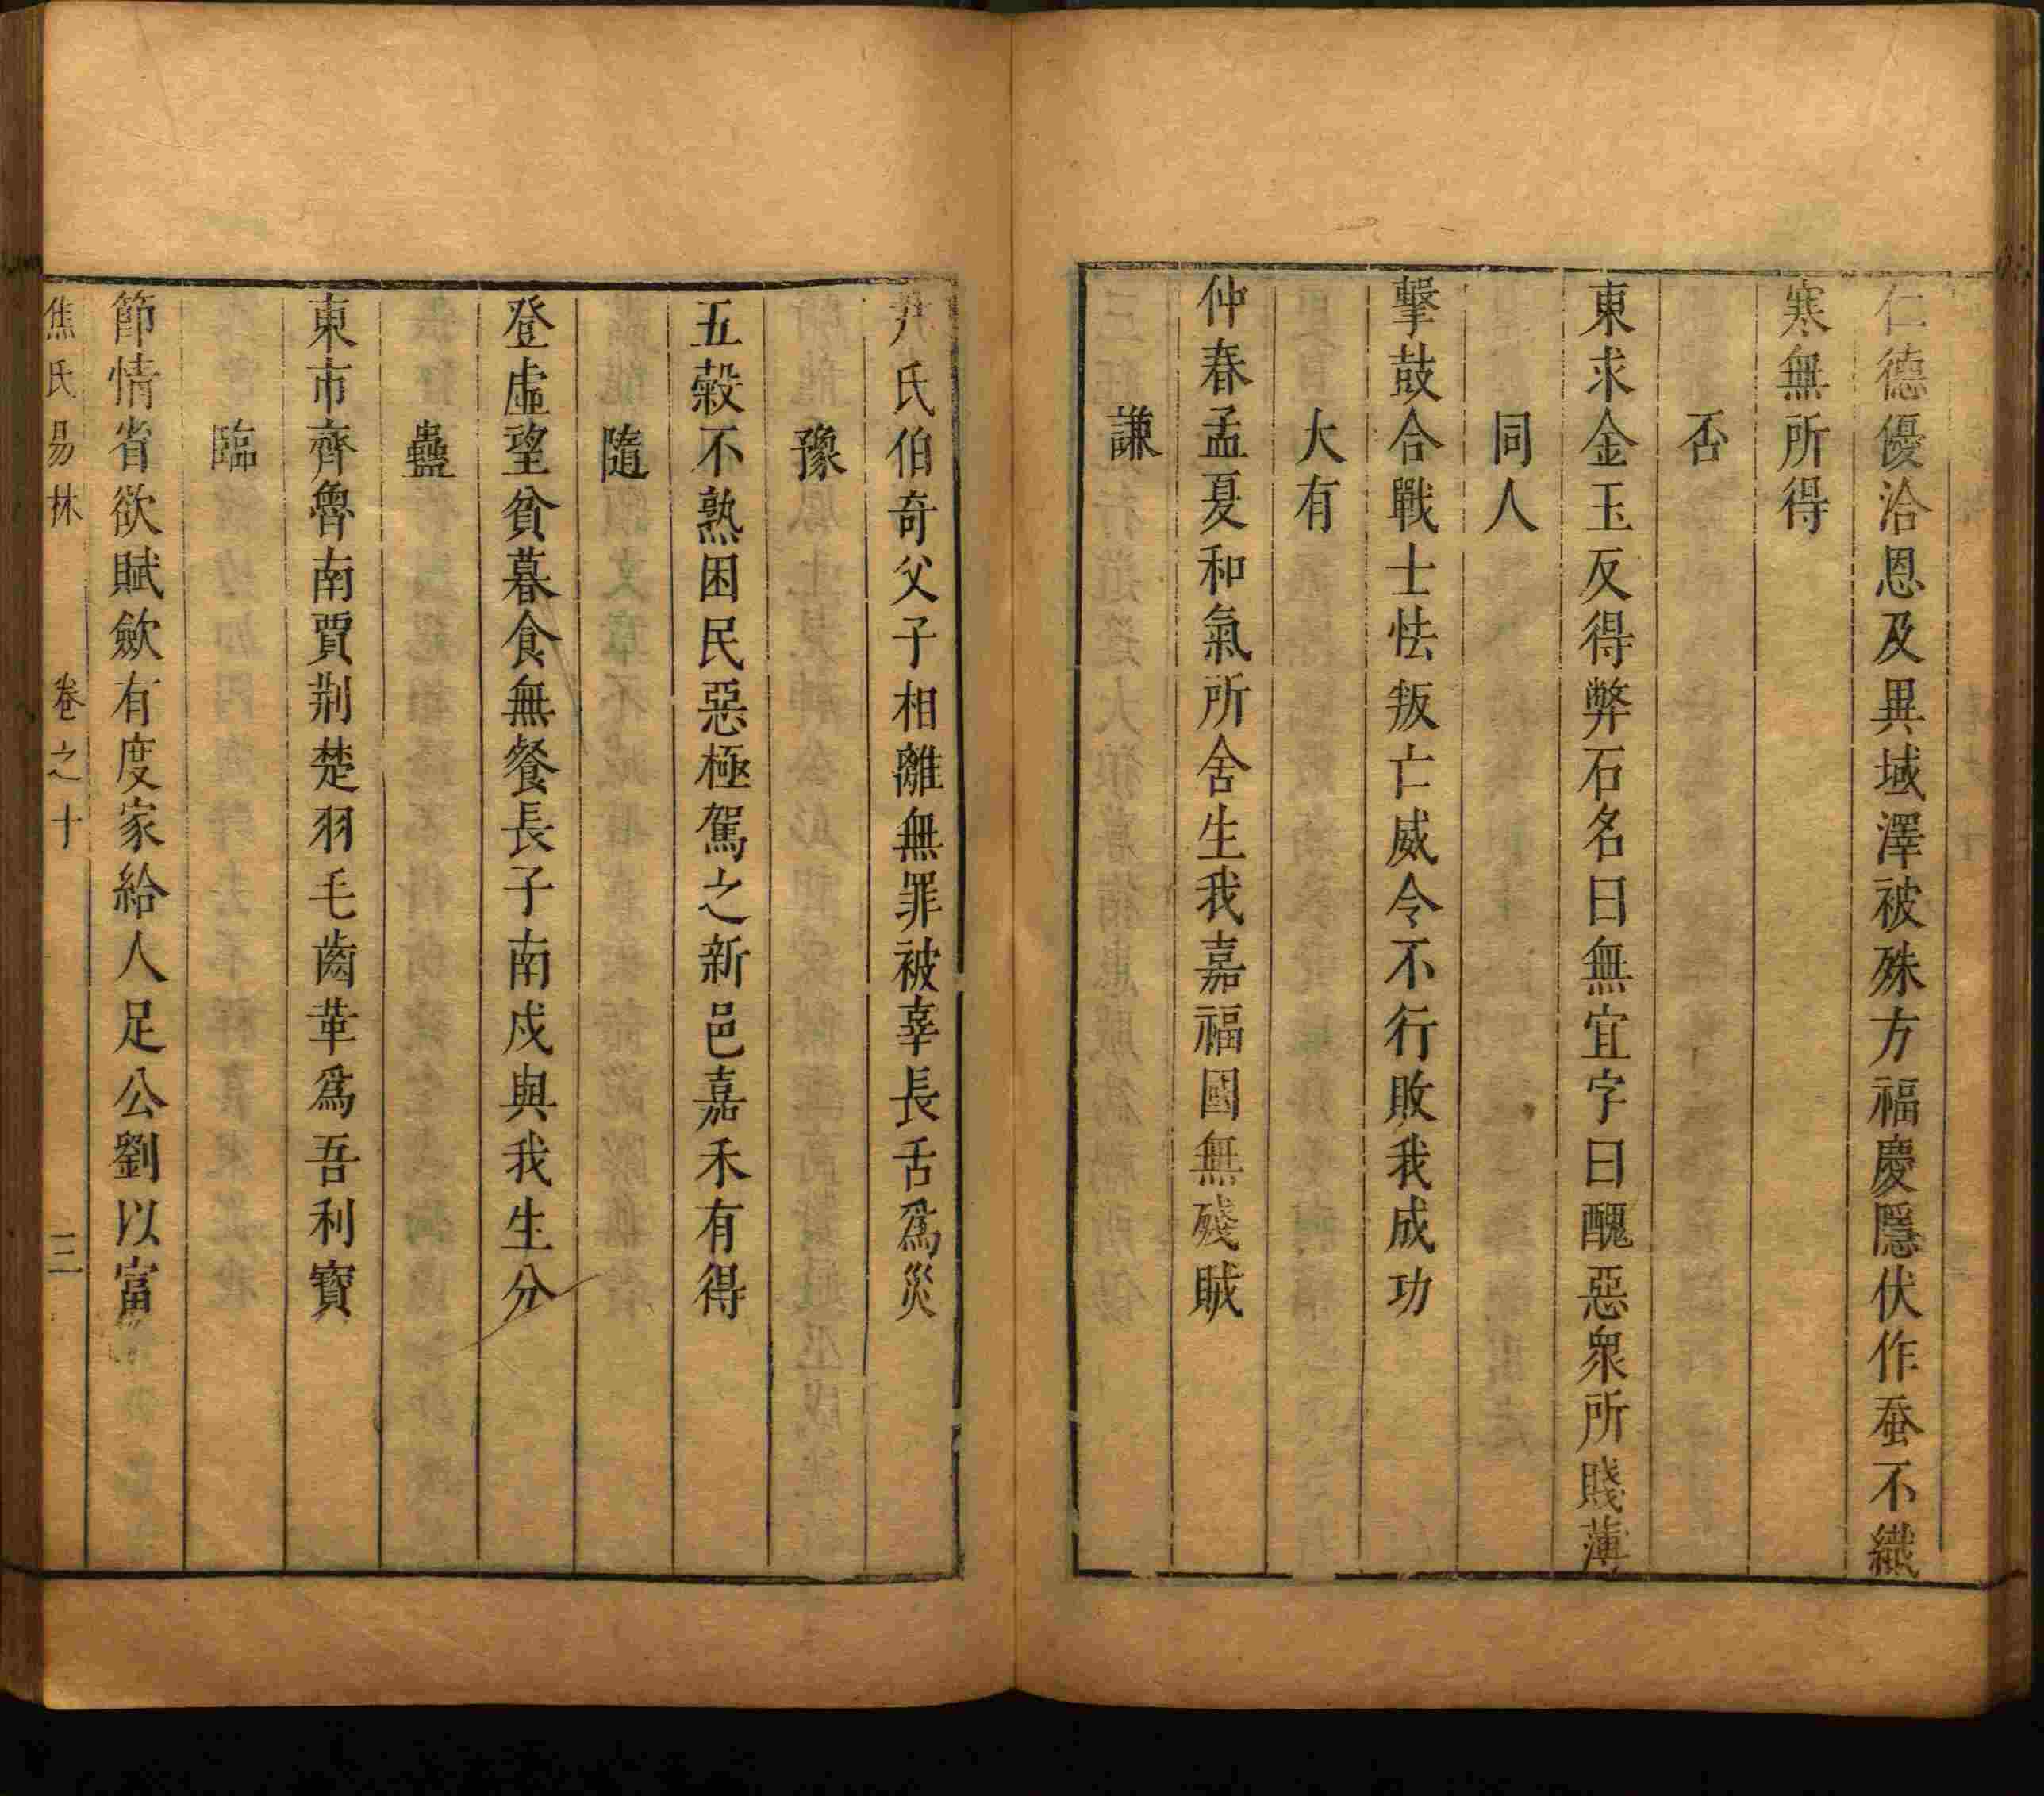 仁德優洽恩及異域澤被殊方福慶隱伏作蚕不織
寒無所得
否
東求金玉反得弊石名曰無宜字曰醜惡衆所賤薄
同人
擊鼓合戰士怯叛亡威令不行敗我成功
大有
仲春孟夏和氣所舍生我嘉福國無殘賊
謙
尹氏伯奇父子相離無罪被辜長舌爲災
豫
五穀不熟困民惡極駕之新邑嘉禾有得
隨
登虛望貧暮食無餐長子南戍與我生分
蠱
東市齊魯南賈荆楚羽毛齒革爲吾利寶
臨
節情省欲賦歛有度家給人足公劉以富
焦氏易林 卷之十 三